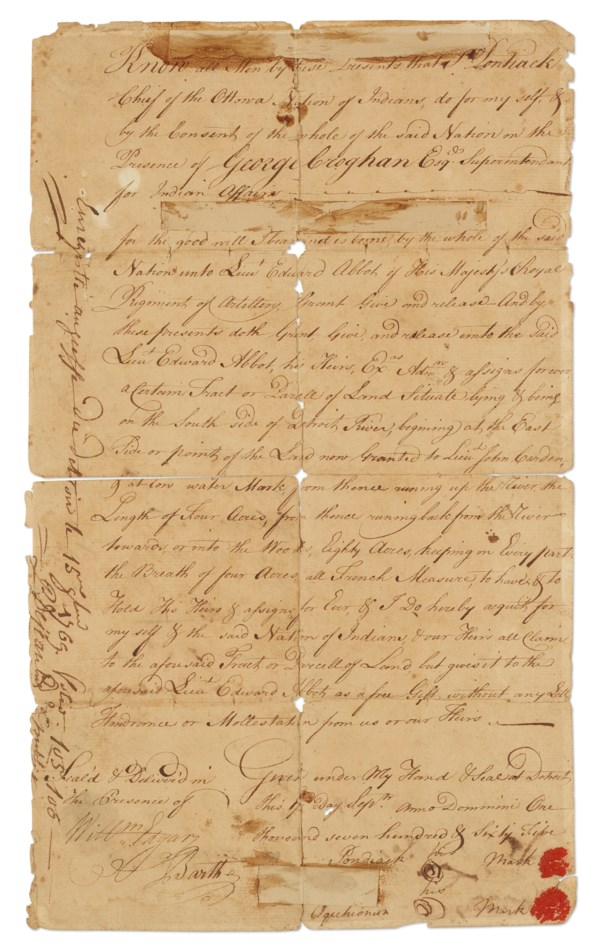 Know all Men by these Presents that I Pondiack
Chief of the Ottowa Nation of Indians, do for my self, &
by the Consent of the whole of the said Nation in the
Presence of George Croghan Esqr. Superintendant
for Indian Affairs
for the good will I bear and is borne by the whole of the said
Nation unto Lieut. Edward Abbot, of His Majesty's Royal
Regiment, of Artillery, Grant Give and release And by
these presents doth Grant, Give, and release unto the said
Lieut. Edward Abbot, his Heirs, Exrs. Admrs. & assigns for ever
a Certain Tract or Parcell of Land Situate lying & being
on the South side of Detroit River, begining at, the East
Side or point, of the Land now Granted to Lieut. John
at low water Mark, from thence runing up the River, the
Length of Four Acres, from thence runing back from the River
towards, or into the Woods, Eighty Acres, keeping in Every part
the Breath of four Acres, all French Measure, to have & to
Hold His Heirs & assigns for Ever, & I Do hereby acquit, for
my self & the said Nation of Indians, & our Heirs all Claim
to the aforesaid Tract or Parcell of Land but gives it to the
aforesaid Lieut. Edward Abbot, as a free Gift without any Lett
Hindrance or Molestation from us or our Heirs.
Seal'd & Deliver'd in
The Presence of
Willm. Edgar
Barthe
Given under My Hand & Seal at Detroit,
this day Sept. Anno Dommini One
thousand seven hundred & Sixty Five
Pondiack his Mark
his
Mark
Enregistré au greffe du Detroit le 15
1769